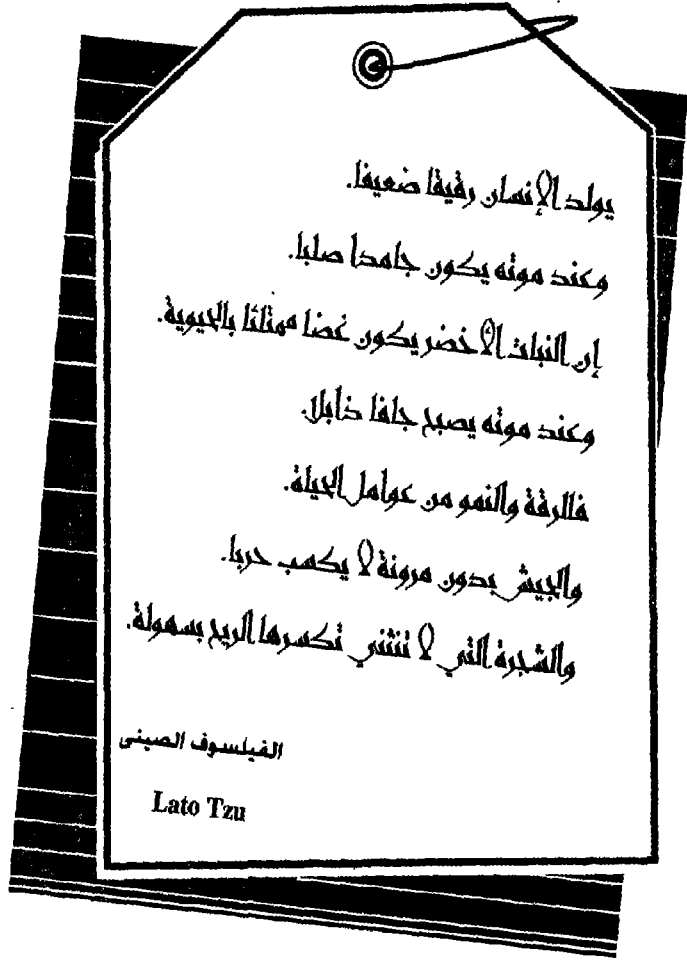 يولد الإنسان رقيقا ضعيفا.
وعند موته يكون جامدا صلبا.
إن النبات الأخضر يكون غضا ممتلئا بالحيوية.
وعند موته يصبح جافا ذابلا.
فالرقة والنمو من عوامل الحياة.
والجيش بدون مرونة لا يكسب حربا.
والشجرة التي لا تنثني تكسرها الريح بسهولة.
الفيلسوف الصينى
Lato Tzu